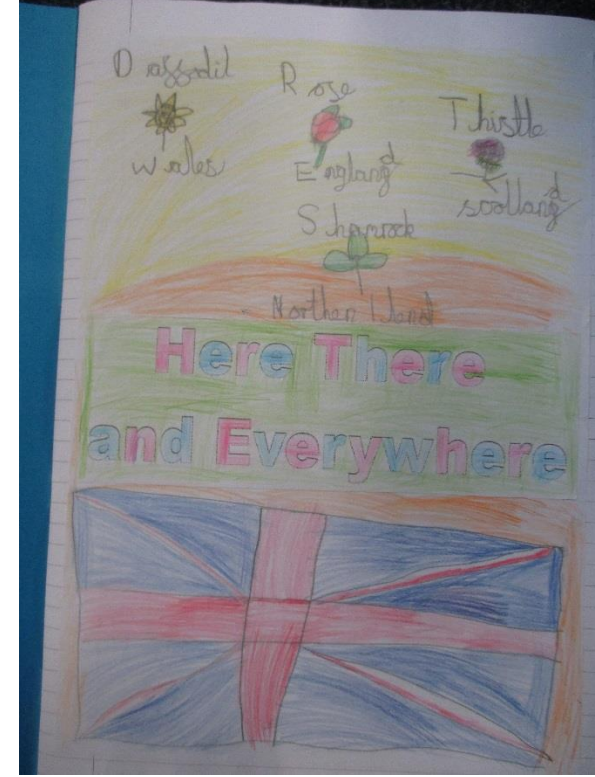 Daffodil
Wales
Rose
England
Thistle
scotland
Shamrock
Northen Iland
Here There
and Everywhere